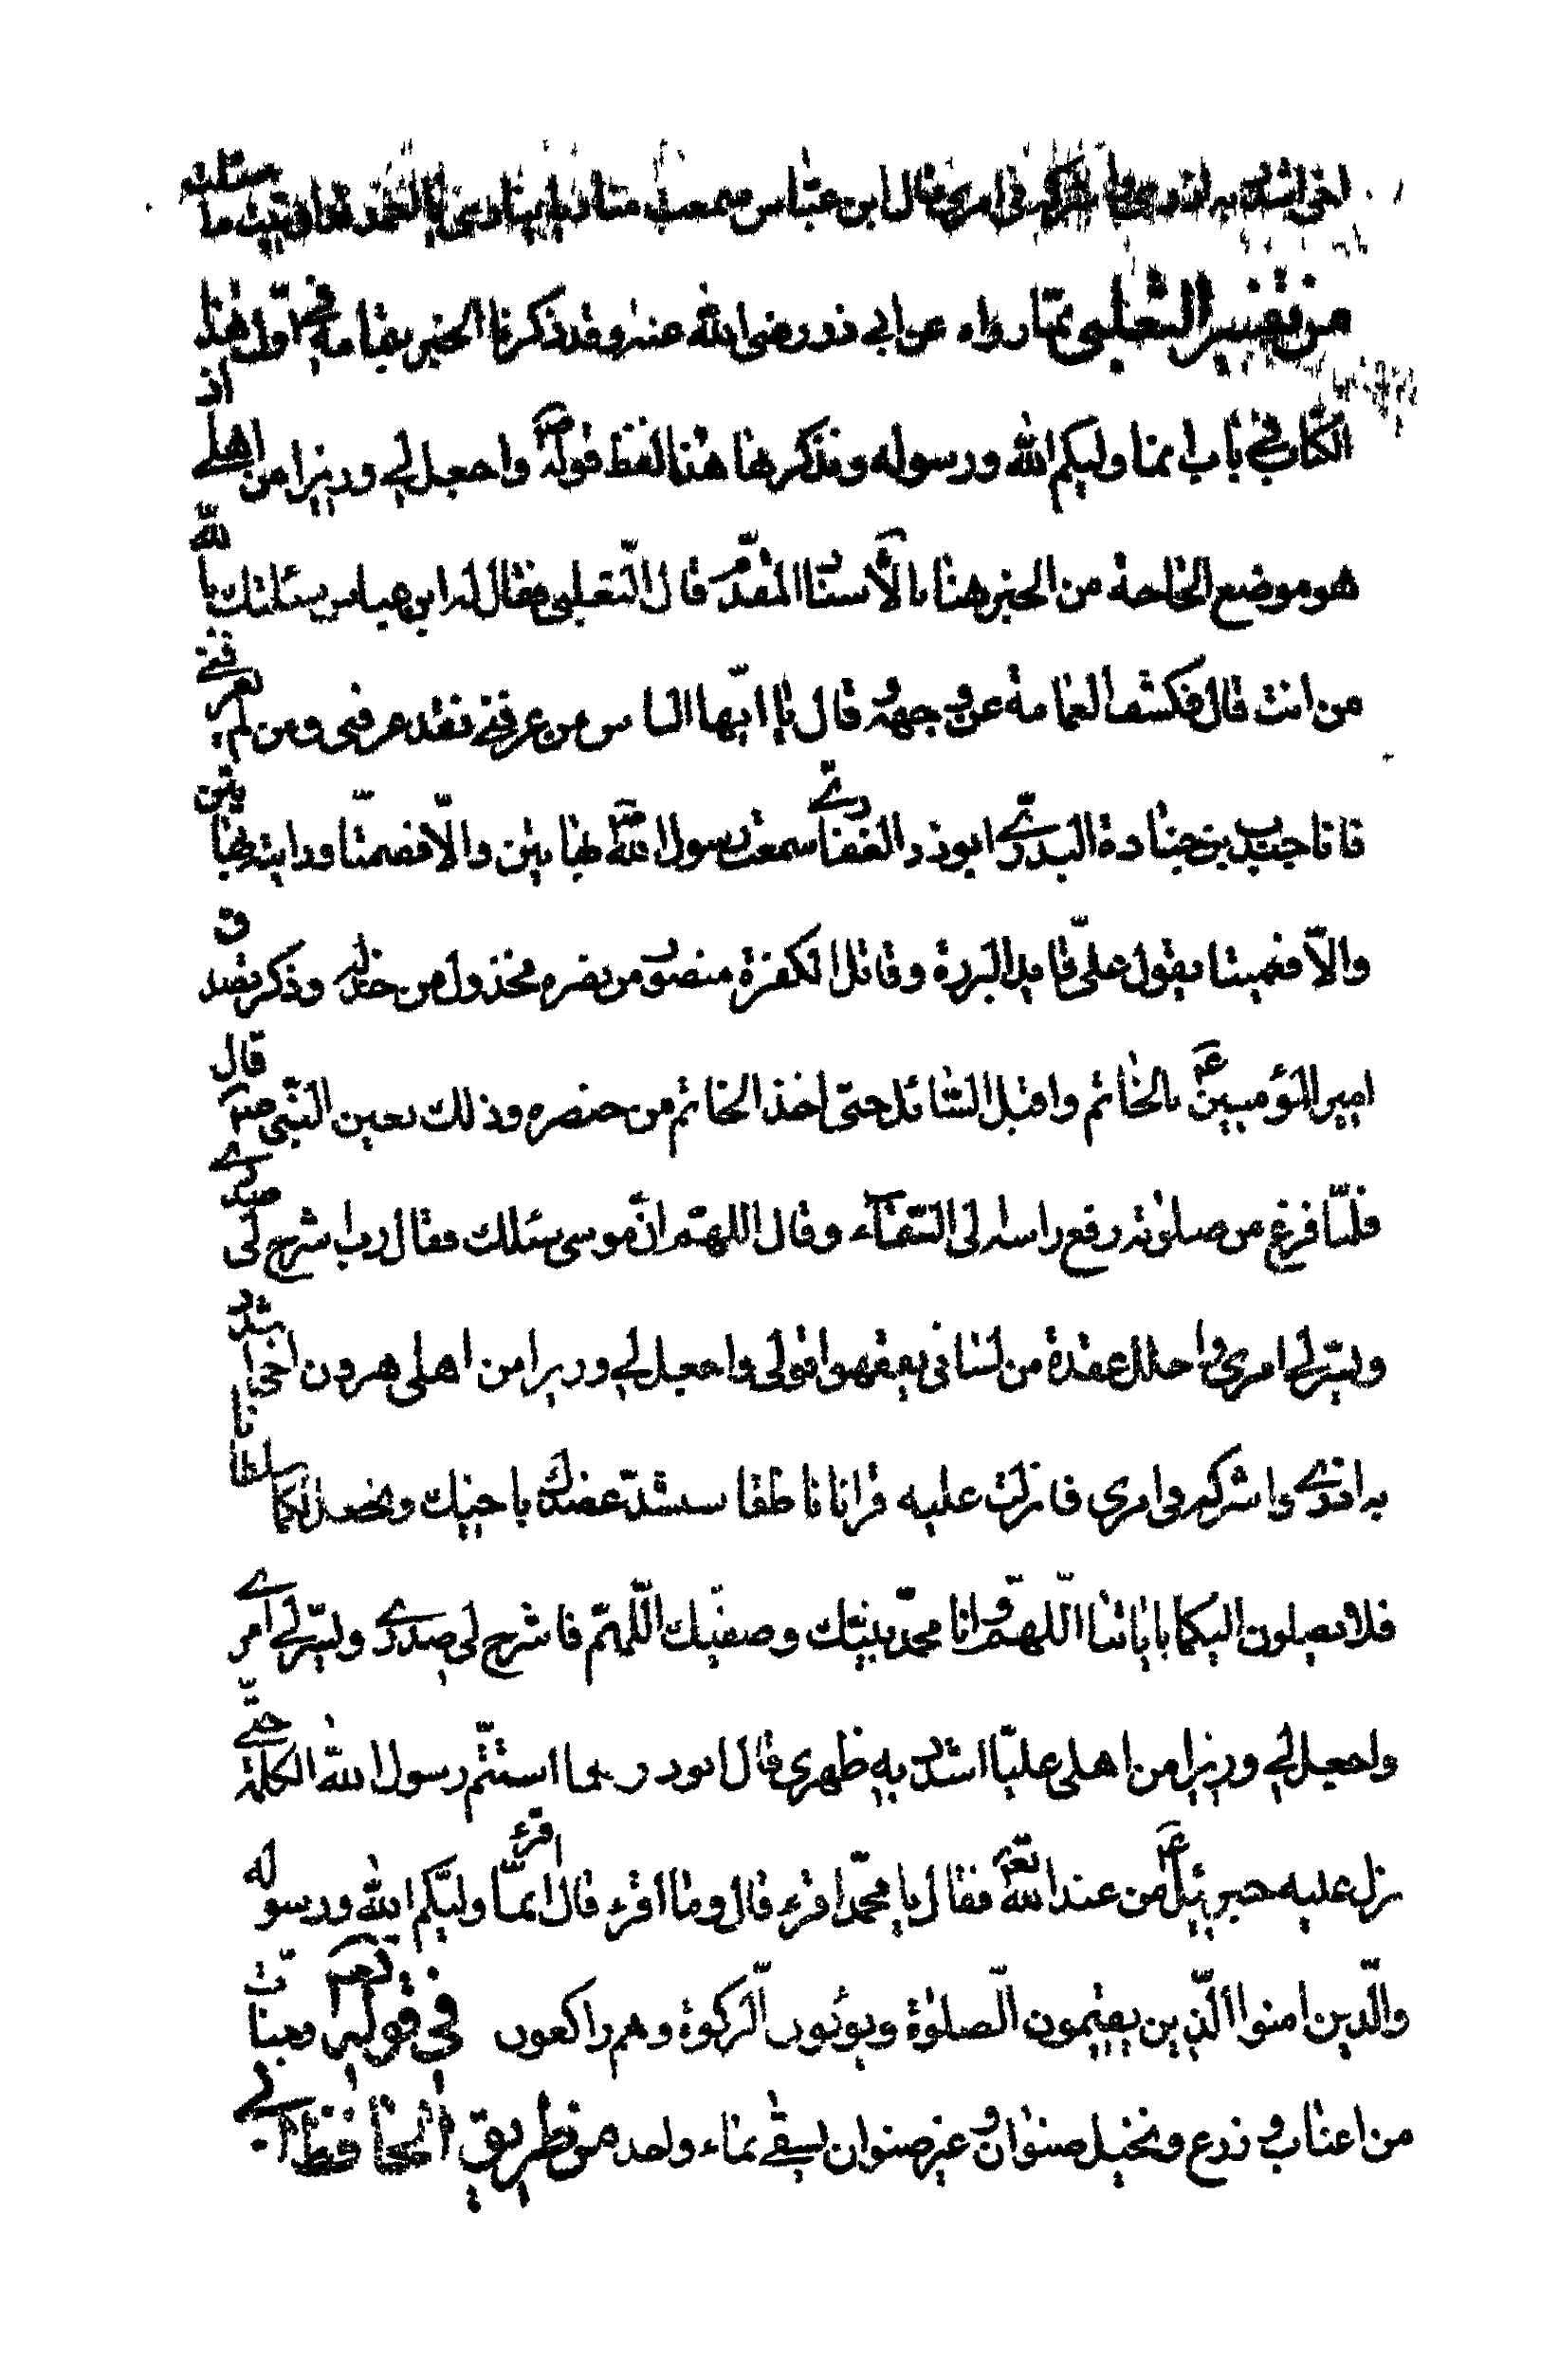 اخی اشدد به ازری واشرکه فی امری قال ابن عبّاس سمعت منادیا ینادی یا احمد قد اوتیت ما سئلت
من تفسیر الثعلبی ممّا رواه عن ابی ذر رضی الله عنه وقد ذکرنا الخبر بتمامه فی اوّل هذا
الکتاب فی باب انما ولیکم الله ورسوله ونذکر هنا لفظ قوله واجعل لی وزیرا من اهلی اذ
هو موضع الحاجة من الخبر هنا بالاسناد المقدّم قال الثعلبی فقال له ابن عباس سئلتک بالله
من انت قال فکشف العمامة عن وجهه و قال یا ایّها الناس من عرفنی فقد عرفنی ومن لم یعرفنی
فانا جندب بن جنادة البدری ابوذر الغفاری سمعت رسول الله بهاتین والّا فصمّتا ورایته بهاتین
والّا فعمیتا یقول علیّ قاید البررة وقاتل الکفرة منصور من نصره مخذول من خذله وذکر تصدق
امیر المؤمنین بالخاتم واقبل السّائل حتی اخذ الخاتم من خنصره وذلک بعین النبّی قال
فلمّا فرغ من صلوته رفع راسه الی السّمآء وقال اللهمّ انّ موسی سئلک فقال رب اشرح لی صدری
ویسّر لی امری واحلل عقدة من لسانی یفقهوا قولی واجعل لی وزیرا من اهلی هرون اخی اشدد
به ازری واشرکه فی امری فانزلت علیه قرانا ناطقا سنشدّ عضدک باخیک ونجعل لکما سلطانا
فلا یصلون الیکما بایاتنا اللهمّ وانا محمّد نبیّک وصفیّک اللّهمّ فاشرح لی صدری ویسّر لی امری
واجعل لی وزیرا من اهلی علیّا اشدد به ظهری قال ابوذر فما استتّم رسول الله الکلمة حتّی
نزل علیه جبرئیل من عند الله فقال یا محمّد اقرء قال وما اقرء قال اقرء انمّا ولیّکم الله ورسوله
والّذین امنوا الّذین یقیمون الّصلوة ویؤتون الّزکوة وهم راکعون فی قوله وجنّات
من اعناب وزرع ونخیل صنوان وغیر صنوان یسقی بماء واحد من طریق الحافظ ابی